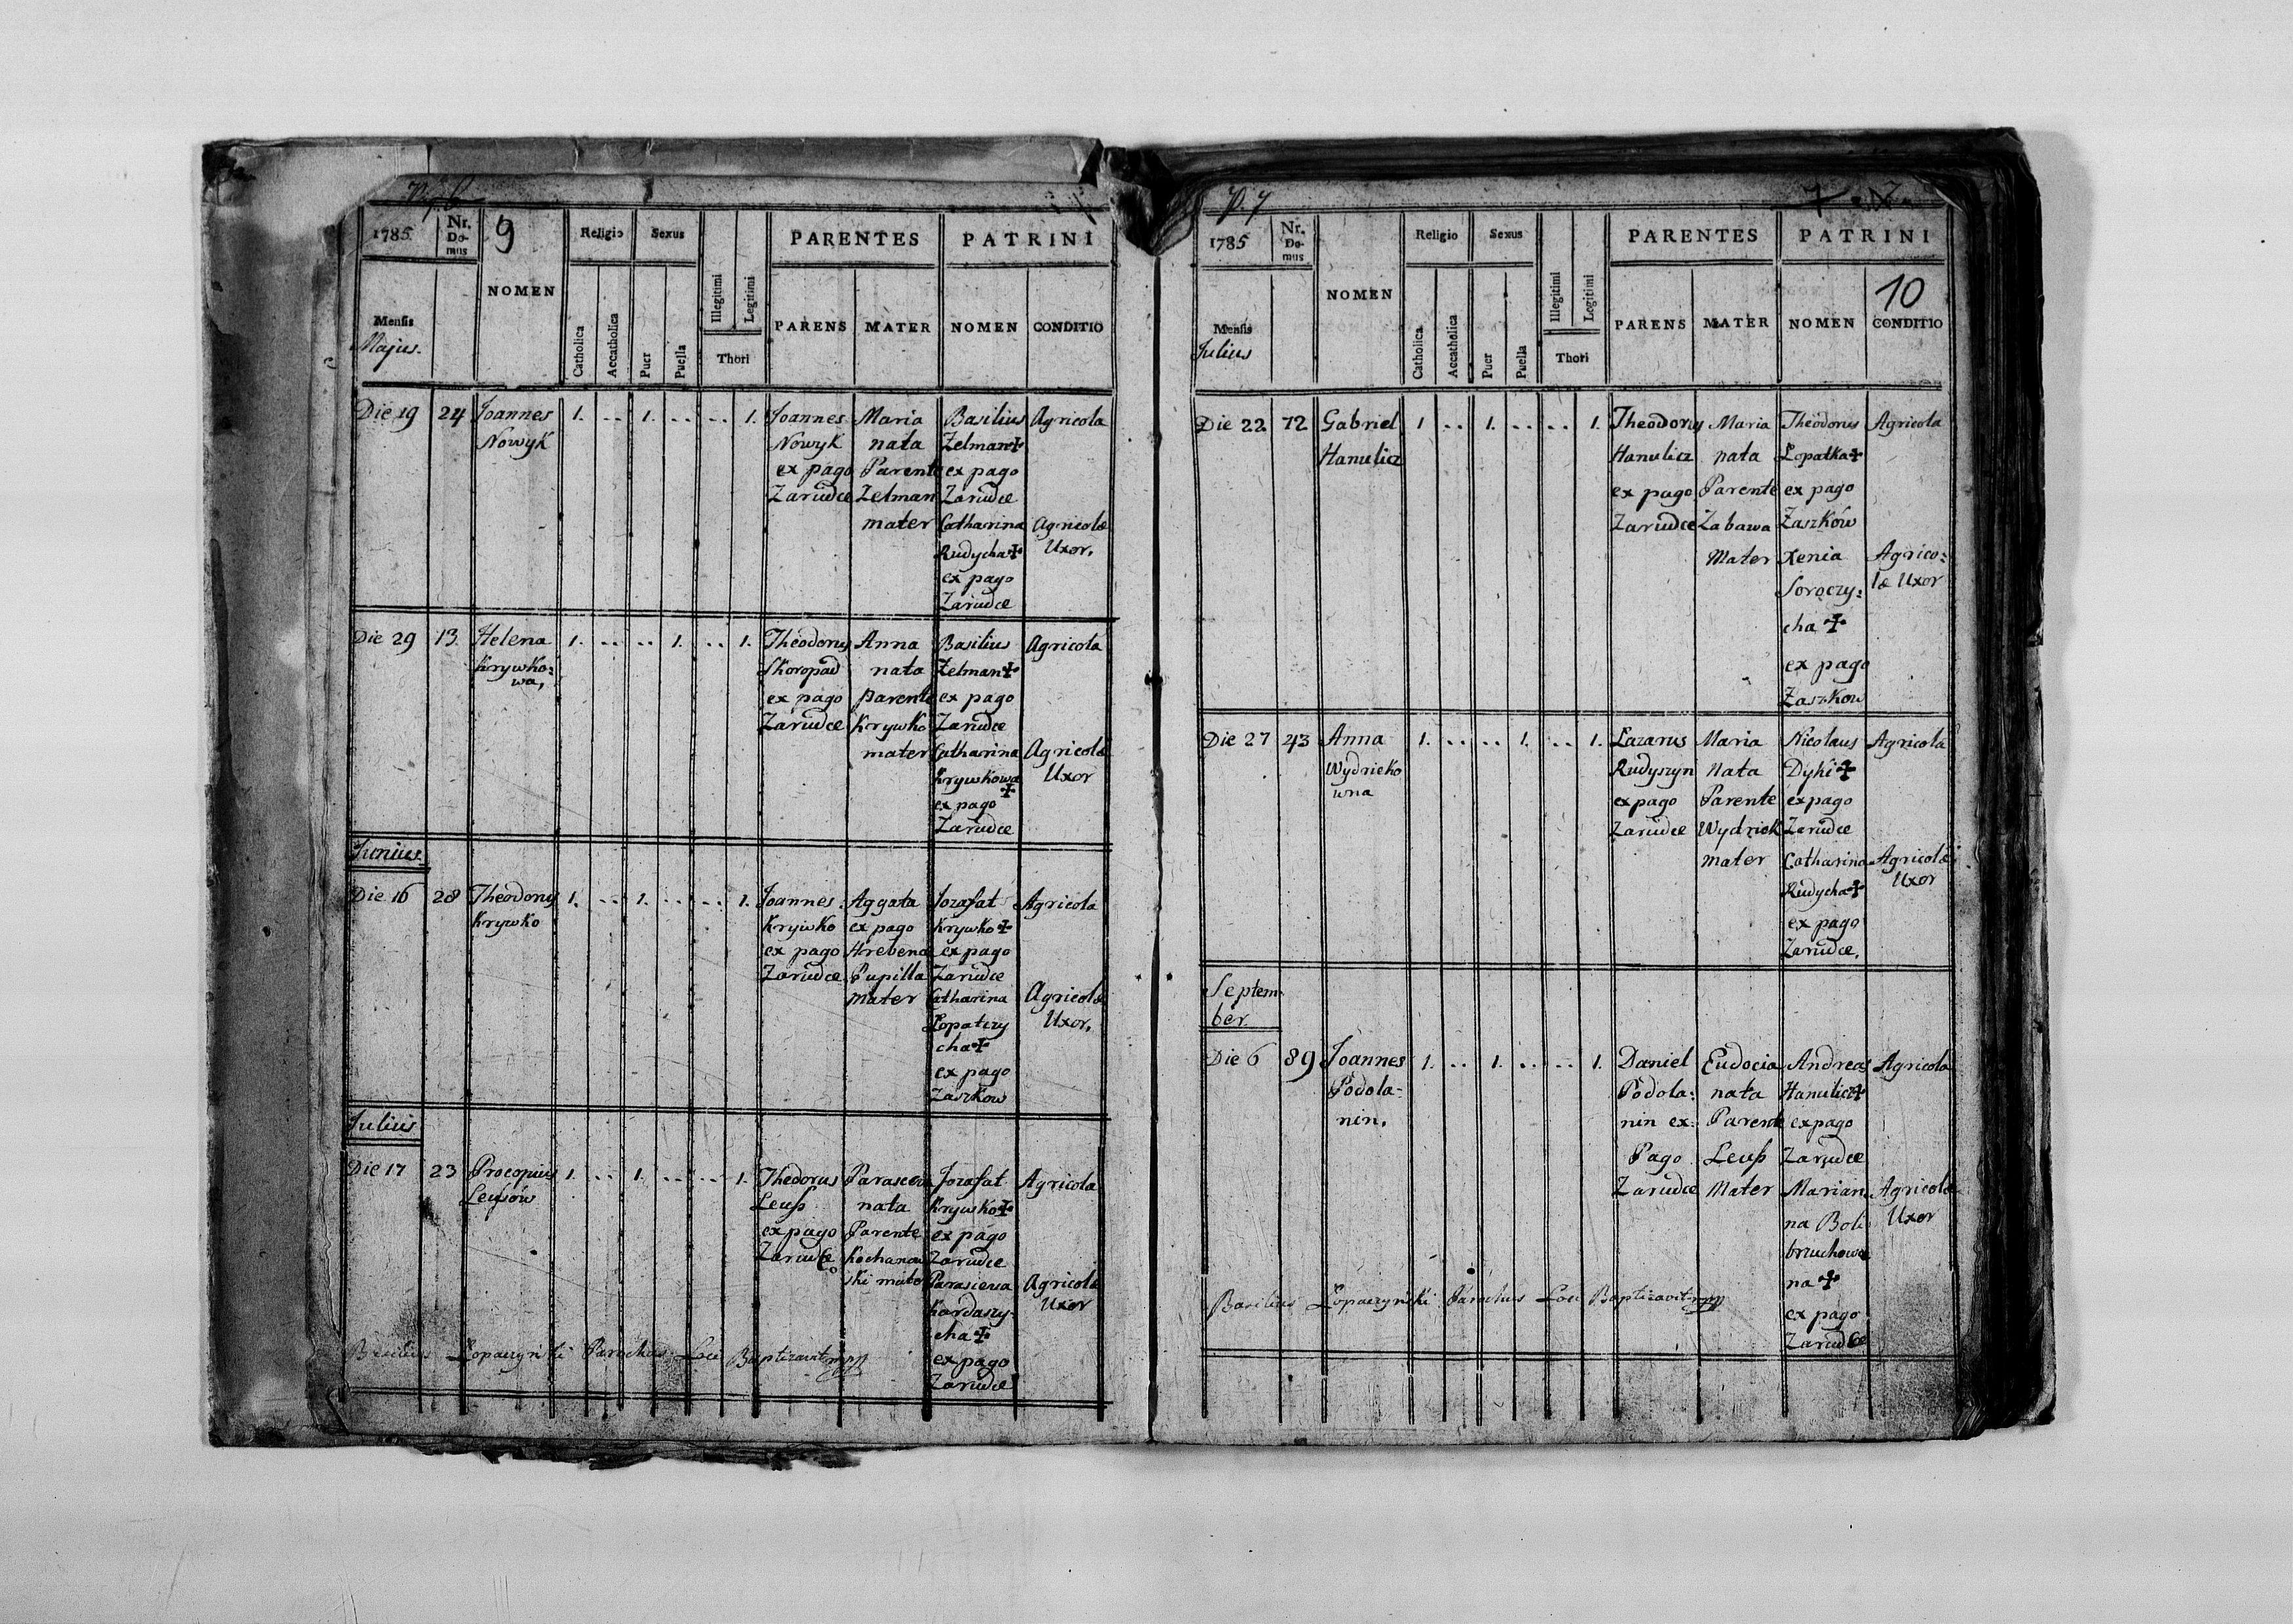 Pag. 6
1785
Nr. Do- mus
9
NOMEN
Religio
Sexus
Illegitimi
Legitimi
PARENTES
PATRINI
Mensis
Majus.
Catholica
Accatholica
Puer
Puella
Thori
PARENS
MATER
NOMEN
CONDITIO
Die 19 24 Joannes 1. .. 1. .. .. 1. Joannes Maria Basilius Agricola
Nowyk Nowyk nata Zelman+
ex pago Parente ex pago
Zarudce Zelman Zarudce
mater Catharina Agricolæ
Rudycha+ Uxor.
ex pago
Zarudce
Die 29 13. Helena 1. .. .. 1. .. 1. Theodorus Anna Basilius Agricola
Krywko= Skoropad nata Zelman+
wa, ex pago Parente ex pago
Zarudce Krywko Zarudce
mater Catharina Agricolæ
Krywkowa Uxor
+
ex pago
Zarudce
Junius
Die 16 28 Theodorus 1. .. 1. .. .. 1. Joannes Aggata Jozafat Agricola
Krywko Krywko ex pago Krywko+
ex pago Hrebenc ex pago
Zarudce Pupilla Zarudce
mater Catharina Agricolæ
Lopatczy Uxor,
cha+
ex pago
Zaszkow
Julius
Die 17 23 Procopius 1. .. 1. .. .. 1. Theodorus Jozafat Agricola
Leusów Leuß nata Krywko+
ex pago Parente ex pago
Zarudce Kochanow Zarudce
ski mater Agricolæ
Kardaszy- Uxor
cha+
Basilius Lopaczynski Parochus Loci Baptizavit mpp
ex pago
Zarudce
P. 7
7
1785
Nr. Do- mus
NOMEN
Religio
Sexus
Illegitimi
Legitimi
PARENTES
PATRINI
10
Mensis
Julius
Catholica
Accatholica
Puer
Puella
Thori
PARENS
MATER
NOMEN
CONDITIO
Die 22 72 Gabriel 1 .. 1. .. .. 1. Theodorus Maria Theodorus Agricola
Hanulicz Hanulicz nata Lopatka+
ex pago Parente ex pago
Zarudce Zabawa Zaszków
Mater Xenia Agrico=
Soroczy= læ Uxor
cha+
ex pago
Zaszkow
Die 27 43 Anna 1. .. .. 1. .. 1. Lazarus Maria Nicolaus Agricola
Wydricko Rudyszyn Nata Dyki+
wna ex pago Parente ex pago
Zarudce Wydrick Zarudce
mater Catharina Agricolæ
Rudycha+ Uxor
ex pago
Zarudce,
Septem
ber
Die 6 89 Joannes 1. .. 1. .. .. 1. Daniel Eudocia Andreas Agricola
Podola- Podola: nata Hanulicz+
nin, nin ex Parente ex pago
Pago Leuß Zarudce
Zarudce Mater Marian Agricolæ
na Boli Uxor
brzuchow
na+
Basilius Lopaczynski Parochus Loci Baptizavit mpp
ex pago
Zarudce